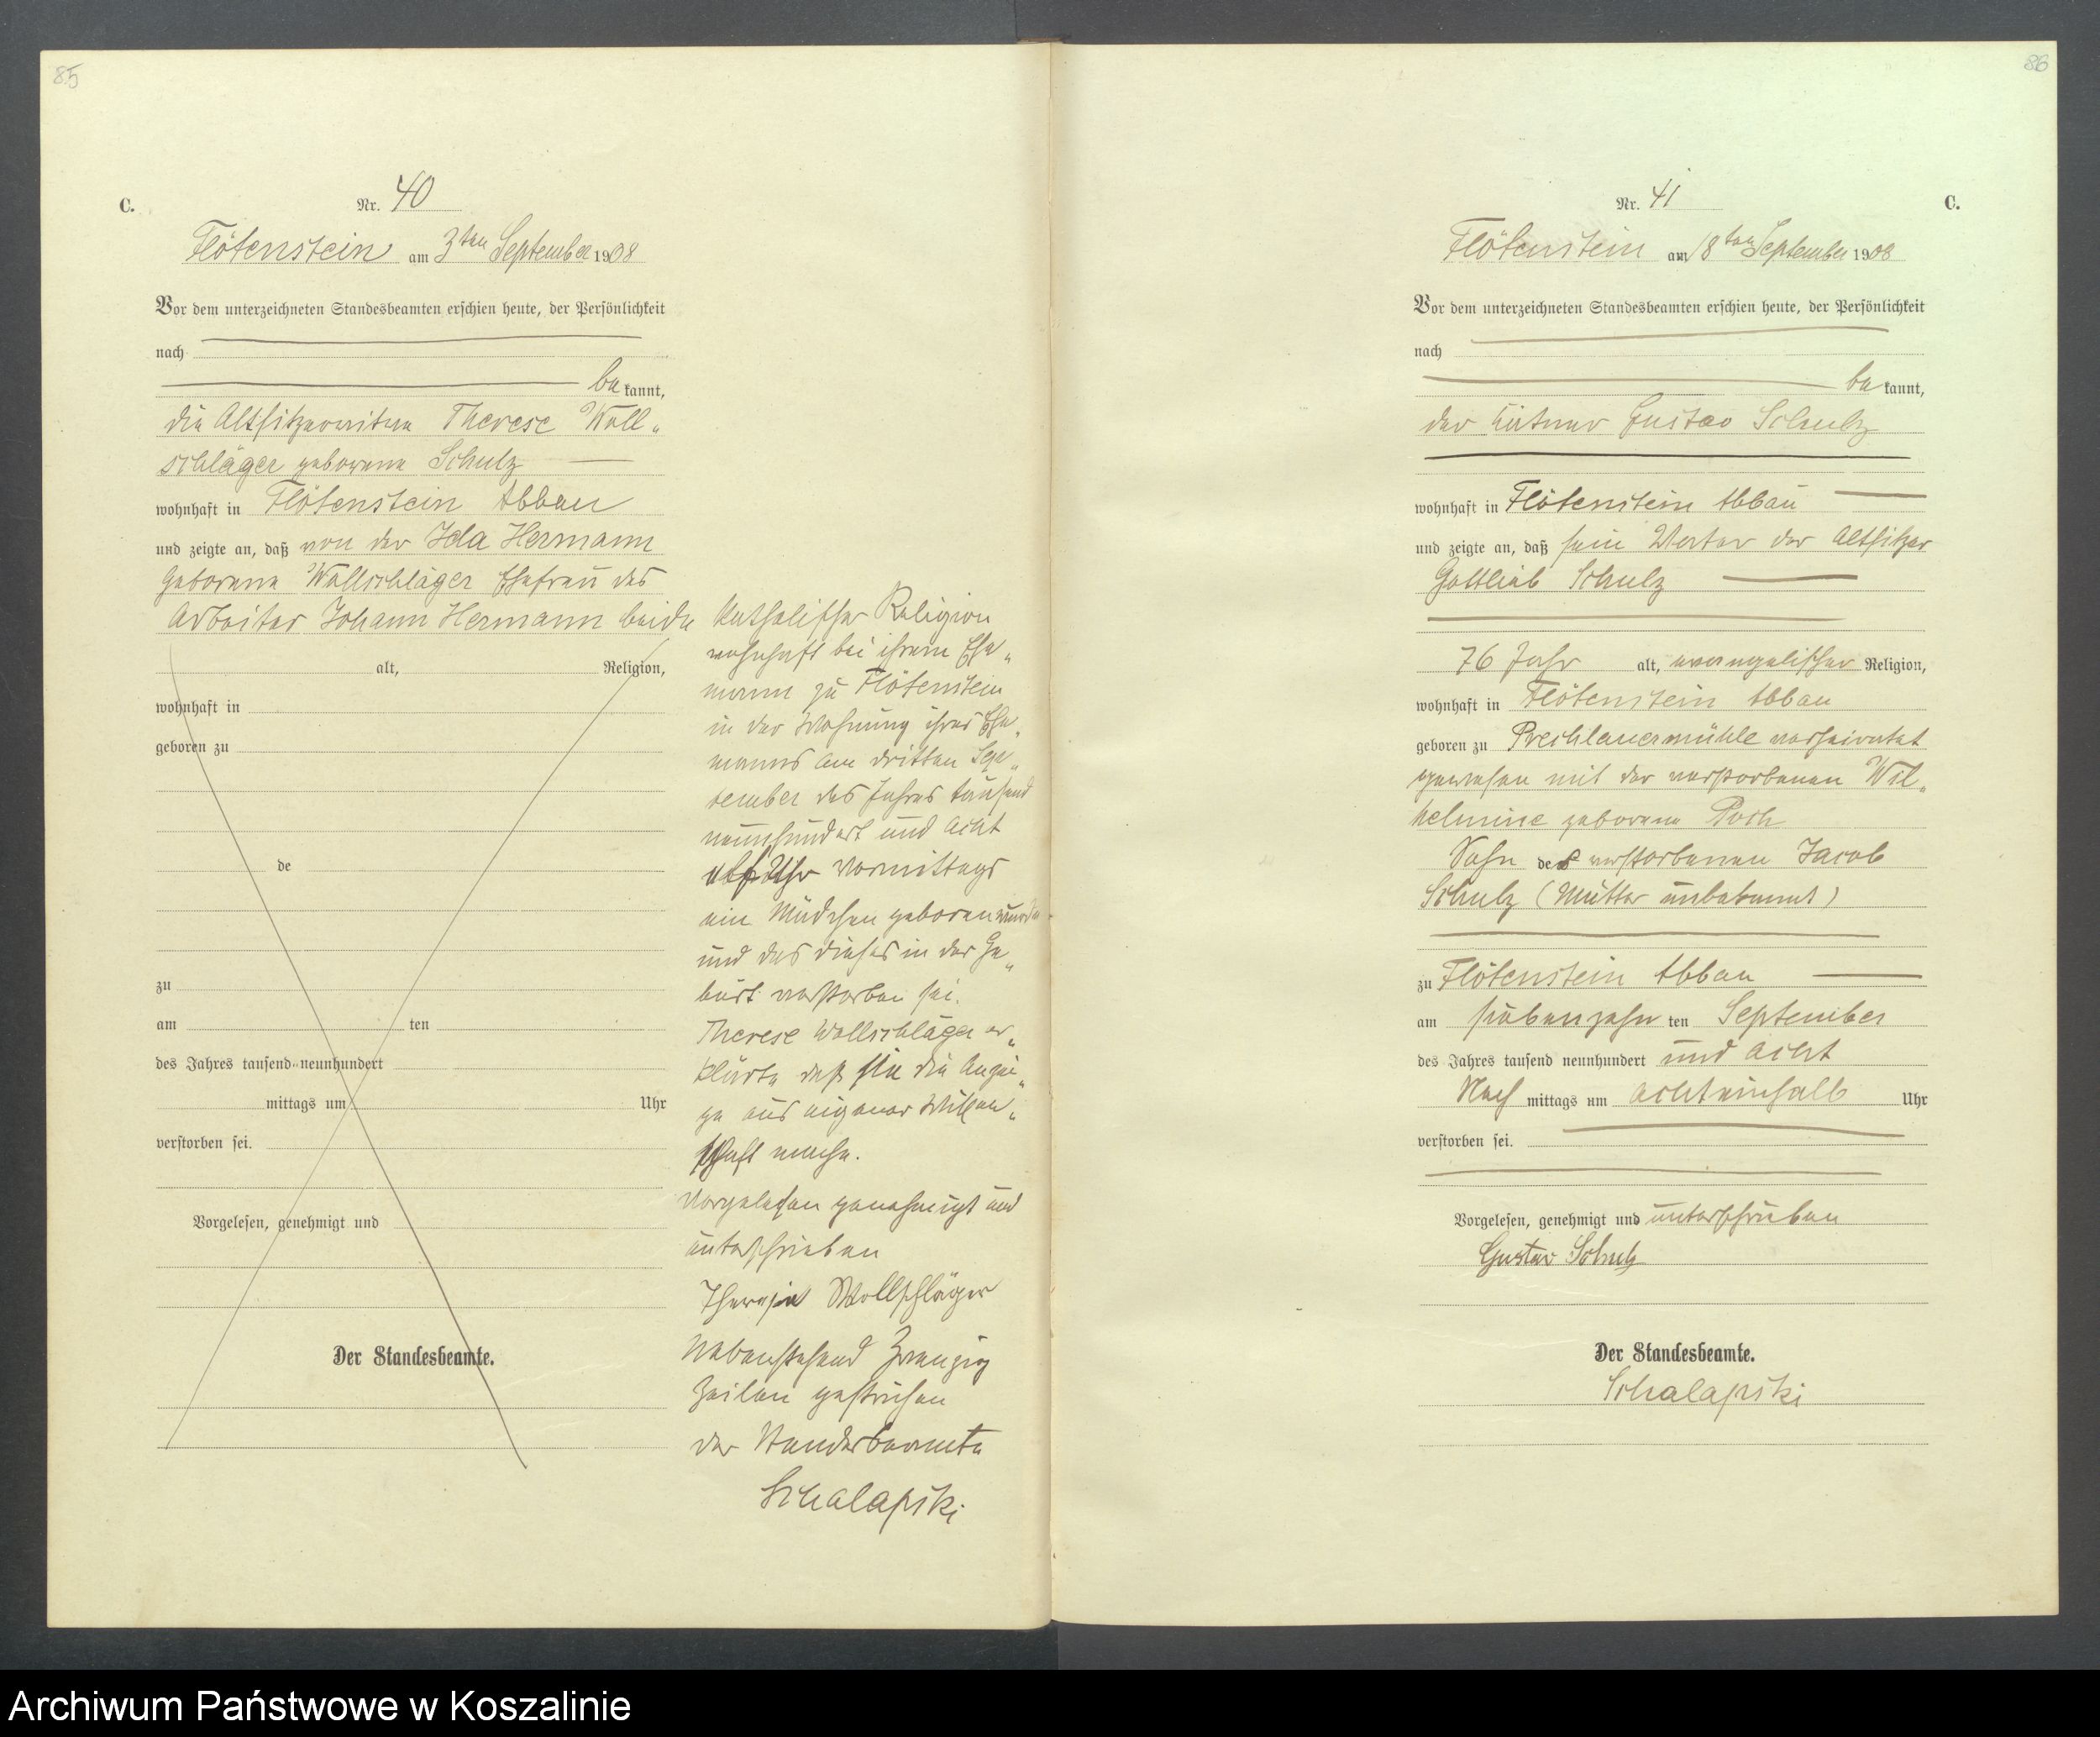 85
C.
Nr. 40
Flötenstein am 3ten September 1908
Vor dem unterzeichneten Standesbeamten erschien heute, der Persönlichkeit
nach
bekannt,
die Altsitzerwitwe Therese Woll„
schläger geborene Schulz
wohnhaft in Flötenstein Abbau
und zeigte an, daß von der Ida Hermann
geborene Wollschläger Ehefrau des
Arbeiter Johann Hermann beide
alt, Religion,
wohnhaft in
geboren zu
de
zu
am ten
des Jahres tausend neunhundert
mittags um Uhr
verstorben sei.
Vorgelesen, genehmigt und
Der Standesbeamte.
katholischer Religion
wohnhaft bei ihrem Ehe„
mann zu Flötenstein
in der Wohnung ihres Ehe„
manns am dritten Sep„
tember des Jahres tausend
neunhundert und acht
elf Uhr Vormittags
ein Mädchen geboren wurde
und das dieses in der Ge„
burt verstorben sei.
Therese Wollschläger er„
klärte daß sie die Anzei„
ge aus eigener Wissen„
schaft mache.
Vorgelesen genehmigt und
unterschrieben
Theresie Wollschläger
Nebenstehend Zwanzig
Zeilen gestrichen
der Standesbeamte
Schalapski
86
Nr. 41
C.
Flötenstein am 18ten September 1908
Vor dem unterzeichneten Standesbeamten erschien heute, der Persönlichkeit
nach
bekannt,
der Kätner Gustav Schulz
wohnhaft in Flötenstein Abbau
und zeigte an, daß sein Vater der Altsitzer
Gottlieb Schulz
76 Jahr alt, evangelischer Religion,
wohnhaft in Flötenstein Abbau
geboren zu Prechlauermühle verheiratet
gewesen mit der verstorbenen Wil„
helmine geborene Poch
Sohn des verstorbenen Jacob
Schulz (Mutter unbekannt)
zu Flötenstein Abbau
am siebenzehn ten September
des Jahres tausend neunhundert und acht
Nach mittags um achteinhalb Uhr
verstorben sei.
Vorgelesen, genehmigt und unterschrieben
Gustav Schulz
Der Standesbeamte.
Schalapski
Archiwum Państwowe w Koszalinie